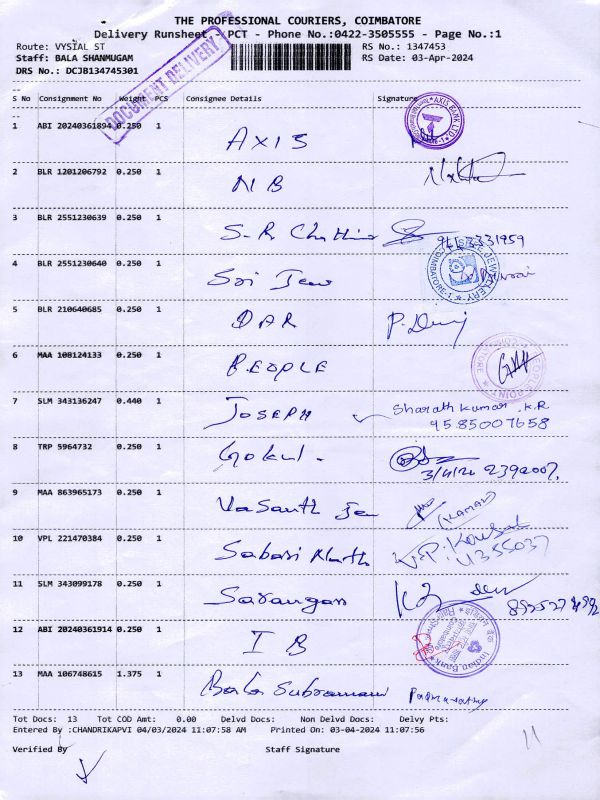 THE PROFESSIONAL COURIERS, COIMBATORE
Delivery Runsheet - PCT - Phone No.:0422-3505555 - Page No.:1
Route: VYSIAL ST RS No.: 1347453
Staff: BALA SHANMUGAM RS Date: 03-Apr-2024
DRS No.: DCJB134745301
DOCUMENT DELIVERY
S No Consignment No Weight PCS Consignee Details Signature
1 ABI 20240361894 0.250 1 AXIS
AXIS BANK LTD
2 BLR 1201206792 0.250 1 NB
3 BLR 2551230639 0.250 1 S-R
4 BLR 2551230640 0.250 1 Sri Jew
JEWELLERY
COIMBATORE-1
5 BLR 210640685 0.250 1 DAR P. Devi
6 MAA 108124133 0.250 1 PEOPLE
PEOPLE POINT COIMBATORE
7 SLM 343136247 0.440 1 JOSEPH Sharath kumar .K.R
9585007658
8 TRP 5964732 0.250 1 Gokul.
9 MAA 863965173 0.250 1 Vasanth Jew
(KAMAL)
10 VPL 221470384 0.250 1 Sabari
11 SLM 343099178 0.250 1 Sarangan
12 ABI 20240361914 0.250 1 IB
Indian Bank
13 MAA 106748615 1.375 1 Bala Subramani
Tot Docs: 13 Tot COD Amt: 0.00 Delvd Docs: Non Delvd Docs: Delvy Pts:
Entered By :CHANDRIKAPVI 04/03/2024 11:07:58 AM Printed On: 03-04-2024 11:07:56
Verified By Staff Signature
11